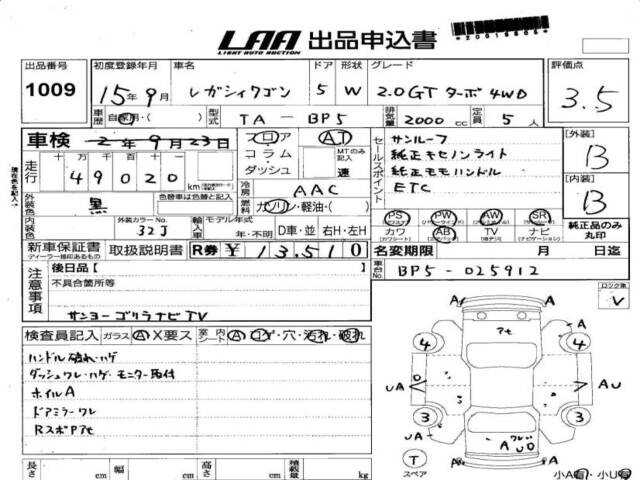 LAA 出品申込書
LIGHT AUTO AUCTION
出品番号
1009
初度登録年月
15年 9月
車名
レガシィワゴン
ドア
5
形状
W
グレード
2.0GT ターボ 4WD
評価点
3.5
車歴
自家用・( )
型式
TA-BP5
排気量
2000 cc
定員
5 人
車検
2年 9月 23日
フロア
コラム
ダッシュ
AT
MTのみ記入
速
セールスポイント
サンルーフ
純正キセノンライト
純正モモハンドル
ETC
[外装]
B
[内装]
B
走行
十 万 千 百 十 一
49020
km
冷房
AAC
燃料
ガソリン・軽油・( )
外装色
黒
色替車は色替と記入
外装カラーNo.
32J
輸入車
モデル年式
年・不明
D車・並 右H・左H
PS PW AW SR
カワ AB TV ナビ
純正品のみ丸印
新車保証書
ディーラー捺印あるもの
取扱説明書
R券 ¥13,510
名変期限 月 日迄
車台No.
BP5-025912
注意事項
後日品[ ]
不具合箇所等
サンヨーゴリラナビTV
検査員記入
ガラス A・X要ス
室内
シート A・コゲ・穴・汚れ・破れ
ハンドル破れ・ハゲ
ダッシュワレ・ハゲ・モニター取付
ホイルA
ドアミラーワレ
RスポPアセ
ロック車
V
A A
アセ
4 4
A A
UA AU
3 3
A ワレ
UD
A A
T
スペア
小A有 小U有
長さ cm
幅 cm
高さ cm
積載量 kg